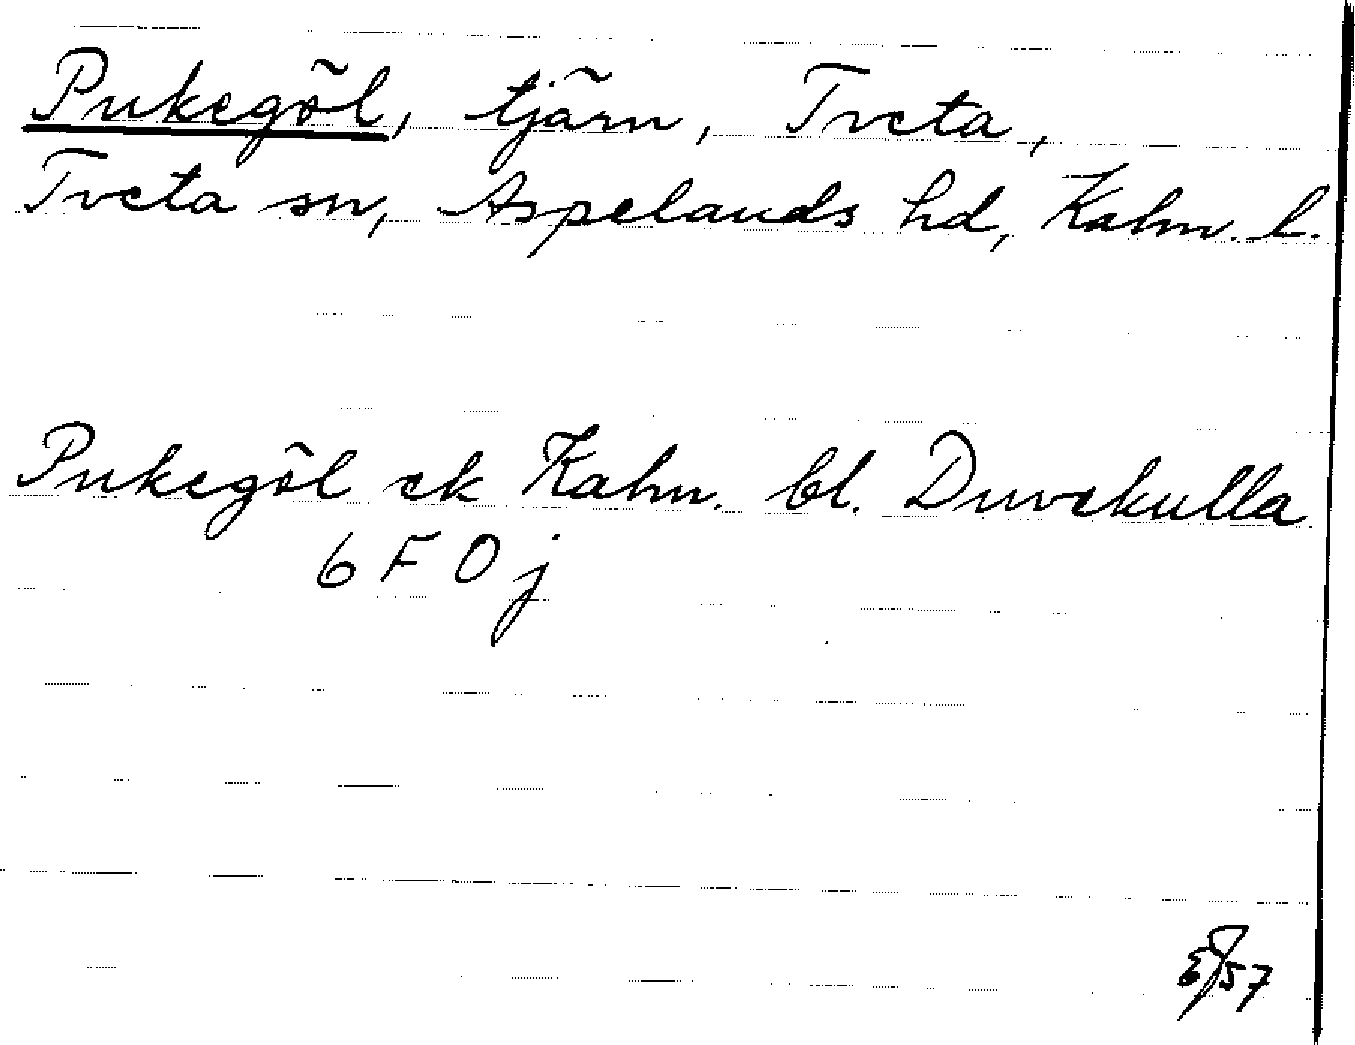 Pukegöl, tjärn, Tveta,
Tveta sn, Aspelands hd, Kalm. l.
Pukegöl ek Kalm. bl. Duvekulla
6 F 0 j